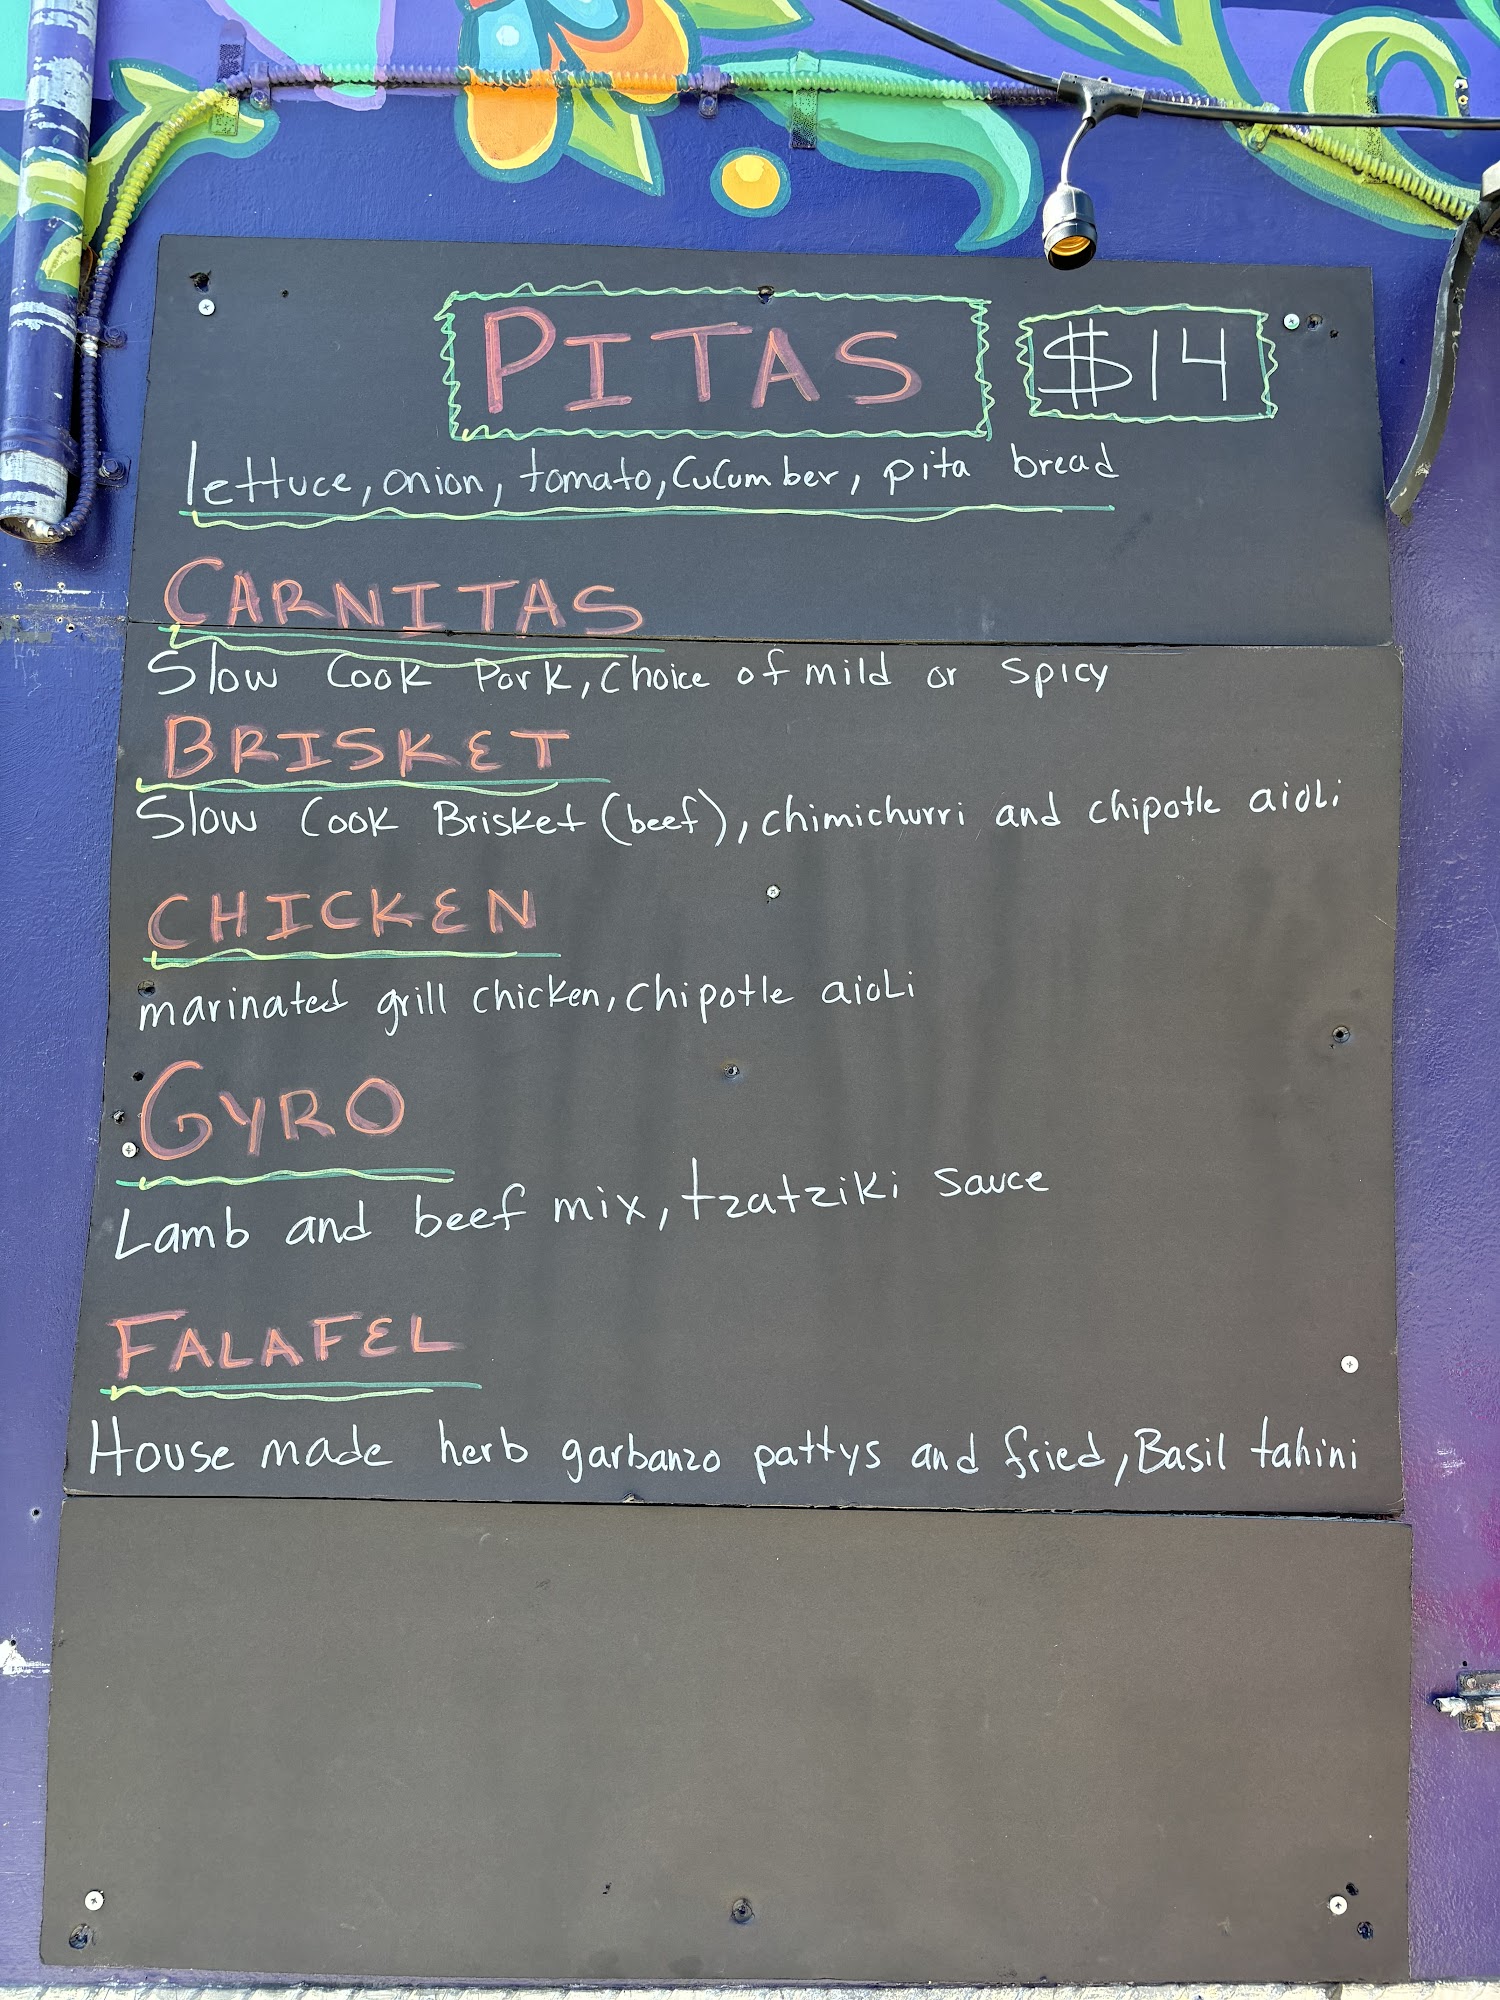 PITAS $14
lettuce, onion, tomato, cucumber, pita bread
CARNITAS
Slow Cook Pork, Choice of mild or spicy
BRISKET
Slow Cook Brisket (beef), chimichurri and chipotle aioli
CHICKEN
marinated grill chicken, chipotle aioli
GYRO
Lamb and beef mix, tzatziki sauce
FALAFEL
House made herb garbanzo pattys and fried, Basil tahini